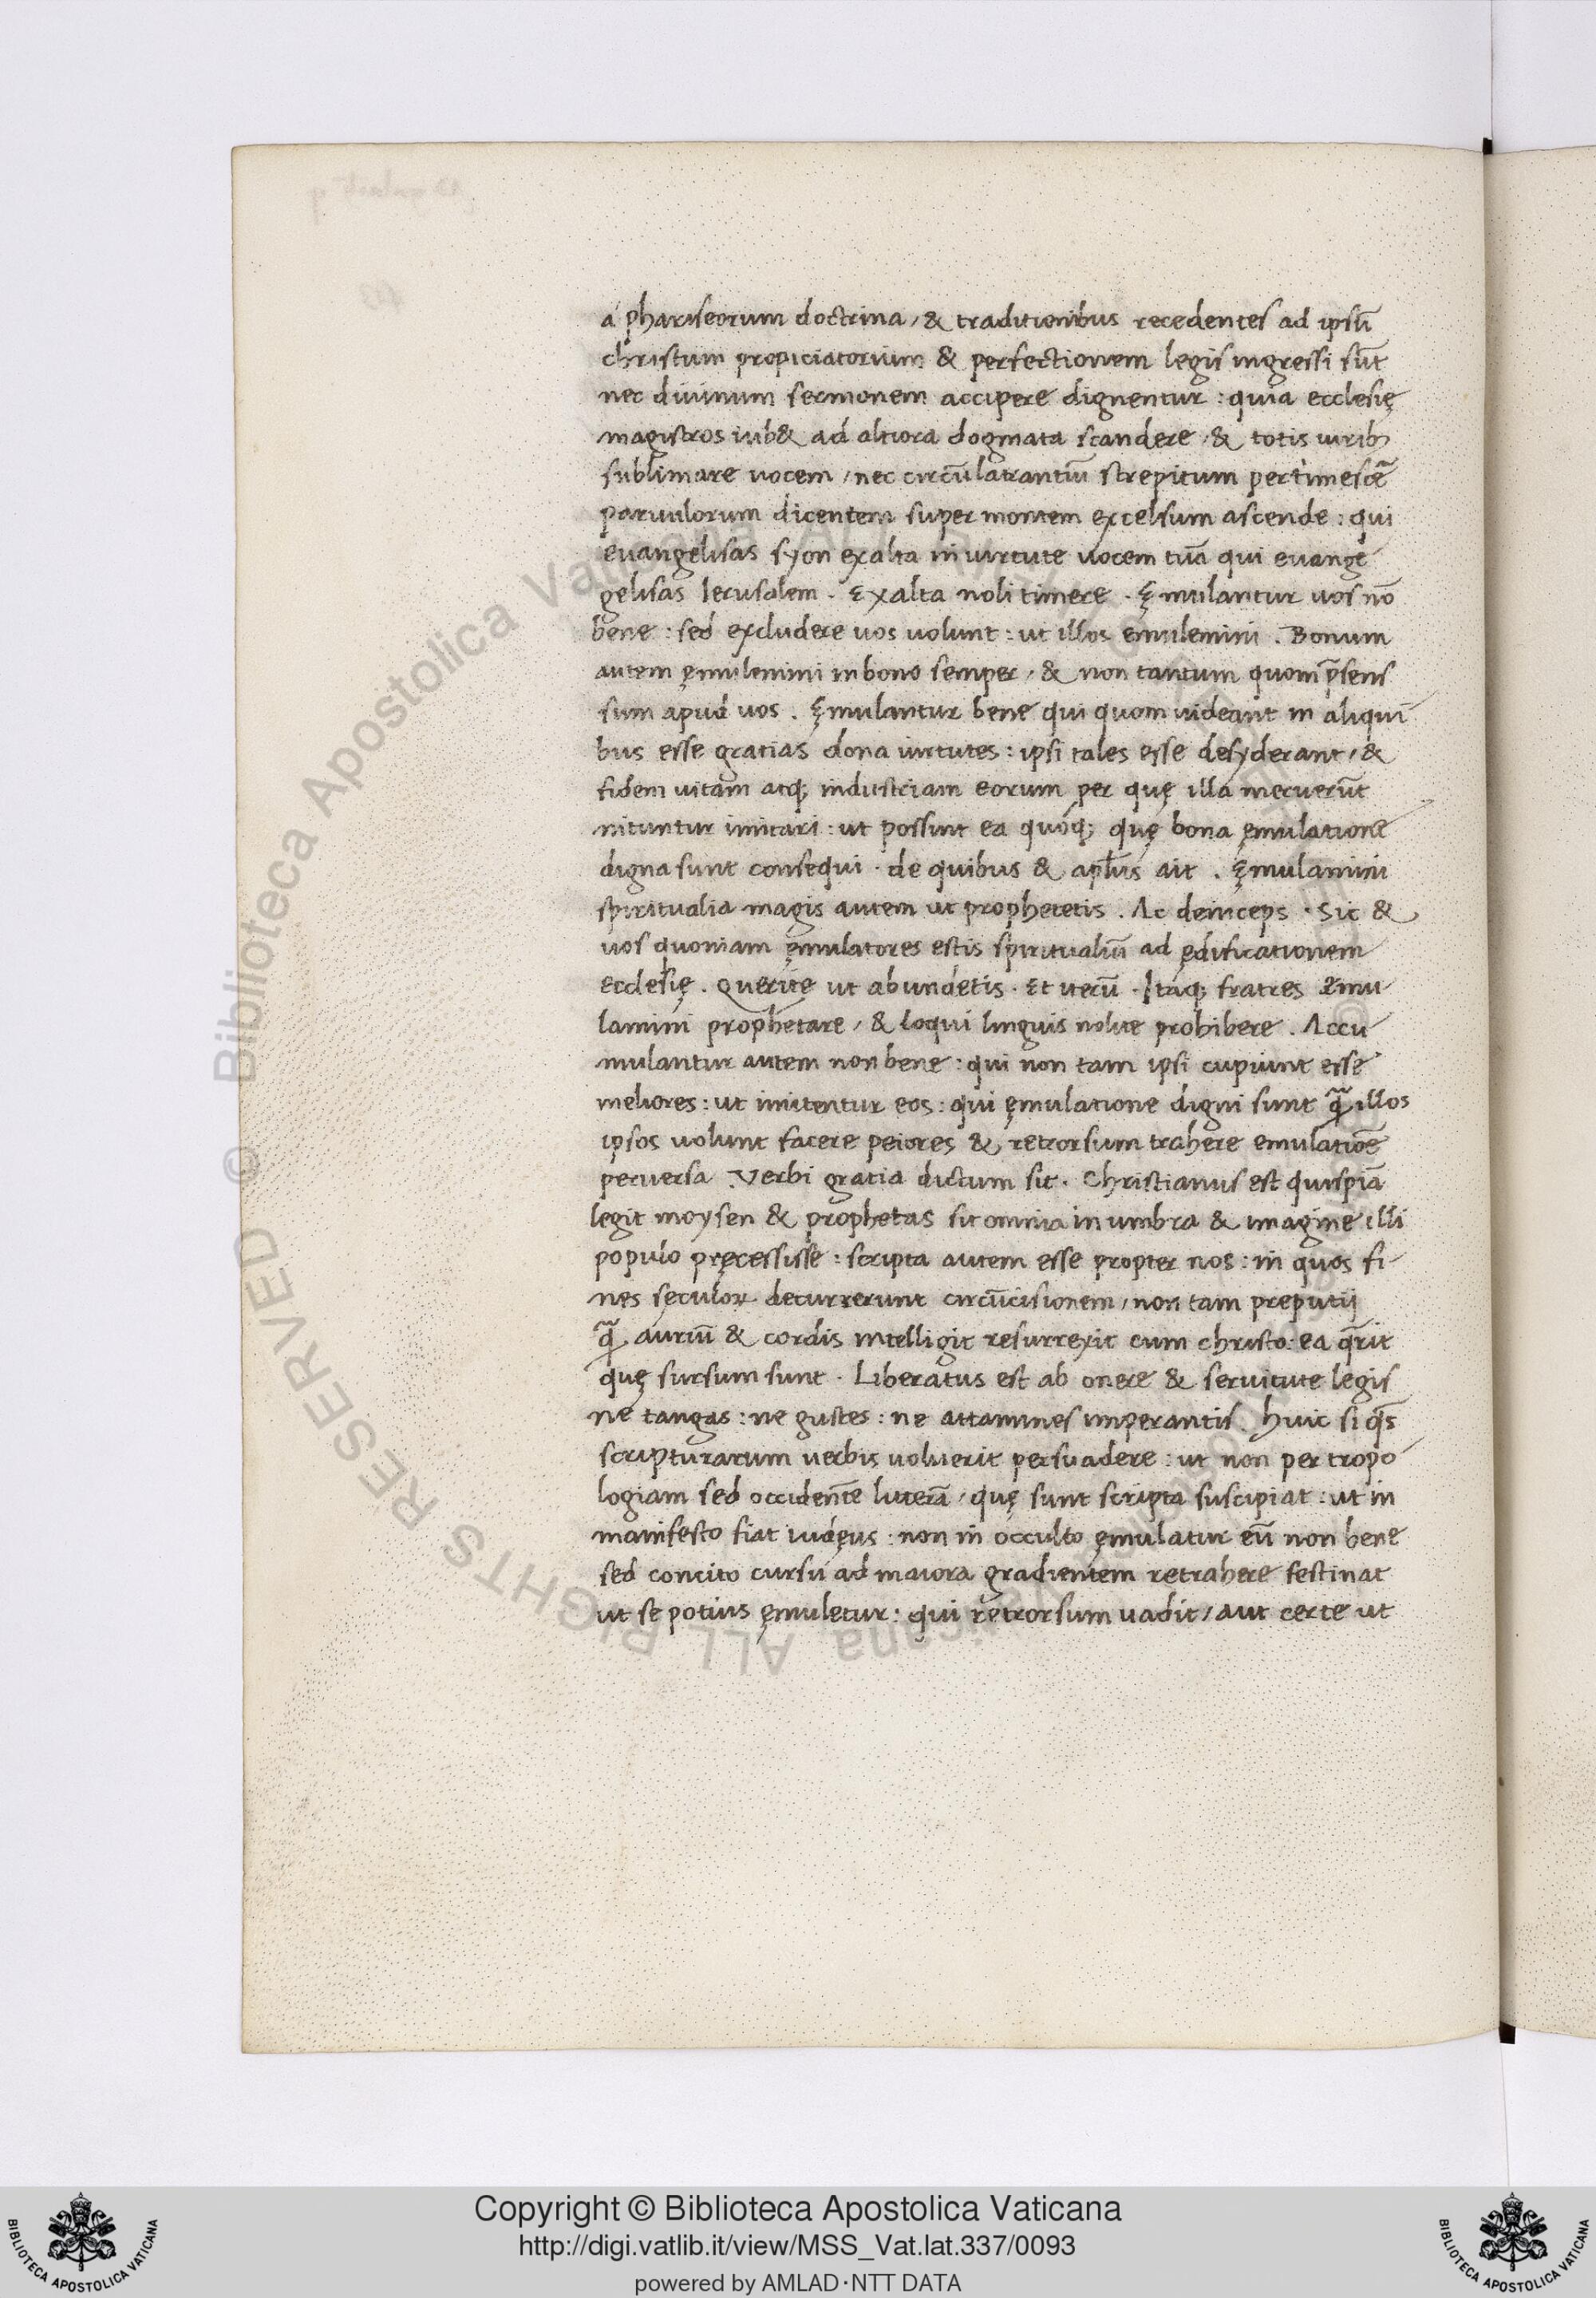 a phariseorum doctrina, & traditionibus recedentes ad ipsū
christum propiciatorium & perfectionem legis ingressi sūt
nec diuinum sermonem accipere dignentur : quia ecclesię
magistros iub& ad altiora dogmata scandere, & totis uirib;
sublimare uocem, nec circūlatrantiū strepitum pertimescē
paruulorum dicentem super montem excelsum ascende : qui
euangelisas syon exalta in uirtute uocem tuā qui euange
gelisas Ierusalem. Exalta noli timere. Ęmulantur uos nō
bene : sed excludere uos uolunt : ut illos emulemini. Bonum
autem ęmulemini in bono semper, & non tantum quom p̄sens
sum apud uos. Ęmulantur bene qui quom uideant in aliqui
bus esse gratias dona uirtutes : ipsi tales esse desyderant, &
fidem uitam atq; industriam eorum per quę illa meruerūt
nituntur imitari : ut possint ea quóq; quę bona ęmulatione
digna sunt consequi. de quibus & apl̄us ait. Ęmulamini
spiritualia magis autem ut prophetetis. Ac deinceps. Sic &
uos quoniam ęmulatores estis spiritualiū ad ędificationem
ecclesię. Querite ut abundetis. Et uerū. Itaq; fratres ęmu
lamini prophetare, & loqui linguis nolite prohibere. Accu
mulantur autem non bene : qui non tam ipsi cupiunt esse
meliores : ut imitentur eos : qui ęmulatione digni sunt q̄ illos
ipsos uolunt facere peiores & retrorsum trahere emulatiōe
peruersa. Verbi gratia dictum sit. Christianus est quispiā
legit moysen & prophetas sit omnia in umbra & imagine illi
populo pręcessisse : scripta autem esse propter nos : in quos fi
nes seculoꝝ decurrerunt circūcisionem, non tam preputij
q̄ auriū & cordis intelligit resurrexit cum christo : ea q̄rit
quę sursum sunt. Liberatus est ab onere & seruitute legis
ne tangas : ne gustes : ne attamines imperantis. Huic si q̄s
scripturarum uerbis uoluerit persuadere : ut non per tropo
logiam sed occidentē litterā, quę sunt scripta suscipiat : ut in
manifesto fiat iudęus : non in occulto ęmulatur eū non bene
sed concito cursu ad maiora gradientem retrahere festinat
ut se potius ęmuletur : qui retrorsum uadit, aut certe ut
© Biblioteca Apostolica Vaticana ALL RIGHTS RESERVED
Copyright © Biblioteca Apostolica Vaticana
http://digi.vatlib.it/view/MSS_Vat.lat.337/0093
powered by AMLAD·NTT DATA
BIBLIOTECA APOSTOLICA VATICANA
BIBLIOTECA APOSTOLICA VATICANA